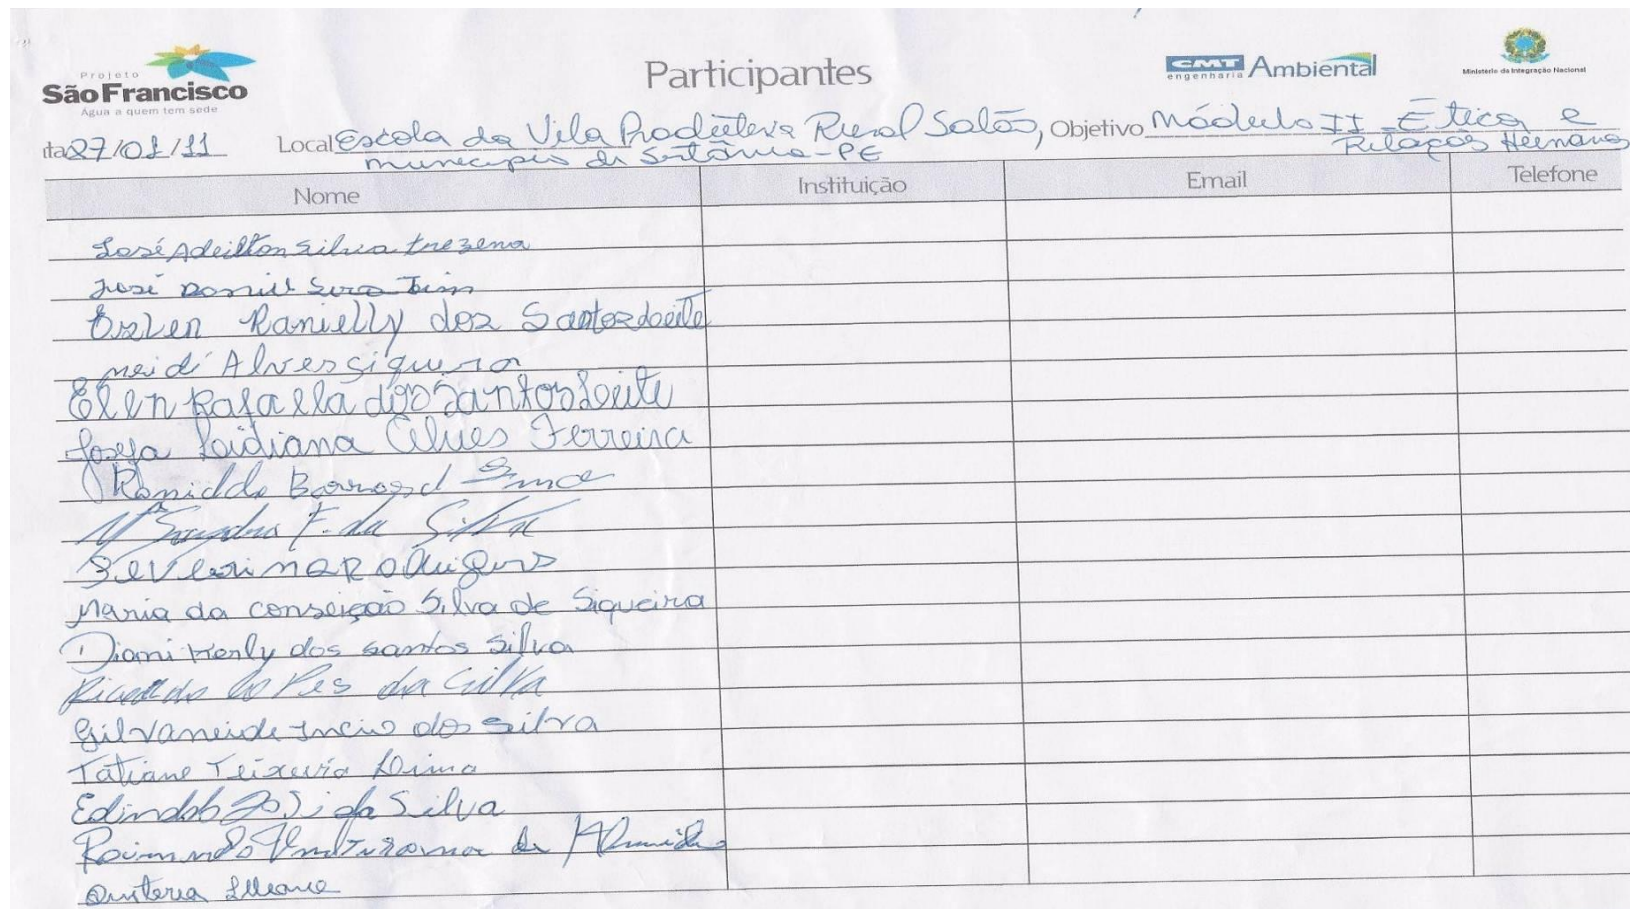 Projeto
São Francisco
Água a quem tem sede
Participantes
CMT Ambiental
engenharia
Ministério da Integração Nacional
ta 27/01/11 Local Escola da Vila Produtiva Rural Salão, Objetivo Módulo II - Ética e
município de Sertânia-PE Relações Humanas
Nome Instituição Email Telefone
José Adeilton Silva trezena
José
Ranielly dos Santos Leite
neidi Alves siqueira
Elen Rafaela dos Santos Leite
Josefa Laidiana Alves Ferreira
Barros
Mª Sandra F. da Silva
Severina Rodrigues
Maria da conseição Silva de Siqueira
Diami Kerly dos santos silva
Ricardo Lopes da Silva
Gilvaneide dos silva
Tatiane Teixeira Lima
José da Silva
Raimundo de Almeida
Quiteria